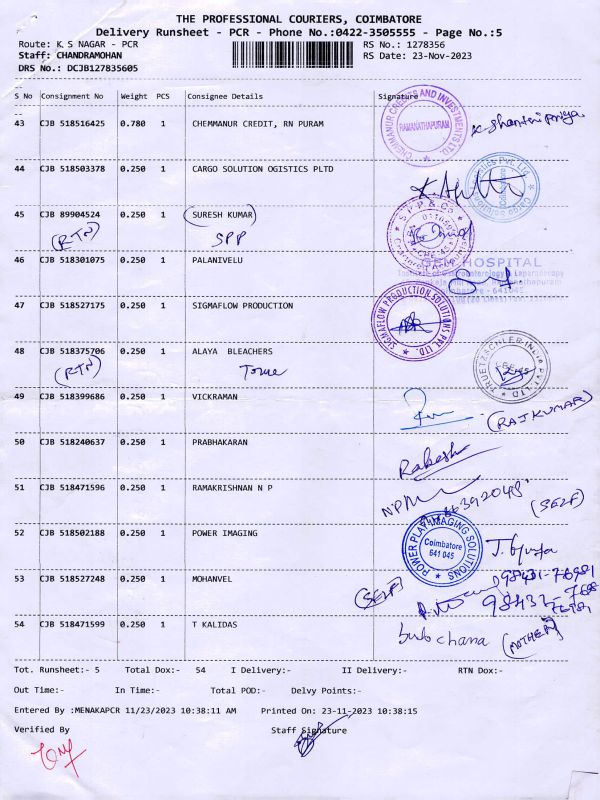 THE PROFESSIONAL COURIERS, COIMBATORE
Delivery Runsheet - PCR - Phone No.:0422-3505555 - Page No.:5
Route: K.S NAGAR - PCR RS No.: 1278356
Staff: CHANDRAMOHAN RS Date: 23-Nov-2023
DRS No.: DCJB127835605
S No Consignment No Weight PCS Consignee Details Signature
43 CJB 518516425 0.780 1 CHEMMANUR CREDIT, RN PURAM
CHEMMANUR CREDITS AND INVESTMENTS LTD.
RAMANATHAPURAM
K. Shanthi priya
44 CJB 518503378 0.250 1 CARGO SOLUTION OGISTICS PLTD
45 CJB 89904524 0.250 1 SURESH KUMAR
(RTN) SPP
S P P & Co.
46 CJB 518301075 0.250 1 PALANIVELU
GEM HOSPITAL
47 CJB 518527175 0.250 1 SIGMAFLOW PRODUCTION
SIGMAFLOW PRODUCTION SOLUTIONS PVT. LTD.
48 CJB 518375706 0.250 1 ALAYA BLEACHERS
(RTN)
49 CJB 518399686 0.250 1 VICKRAMAN
(RAJKUMAR)
50 CJB 518240637 0.250 1 PRABHAKARAN
Rakesh
51 CJB 518471596 0.250 1 RAMAKRISHNAN N P
(SELF)
52 CJB 518502188 0.250 1 POWER IMAGING
Coimbatore
641 045
53 CJB 518527248 0.250 1 MOHANVEL
(SELF)
98431-76981
54 CJB 518471599 0.250 1 T KALIDAS
(MOTHER)
Tot. Runsheet:- 5 Total Dox:- 54 I Delivery:- II Delivery:- RTN Dox:-
Out Time:- In Time:- Total POD:- Delvy Points:-
Entered By :MENAKAPCR 11/23/2023 10:38:11 AM Printed On: 23-11-2023 10:38:15
Verified By Staff Signature